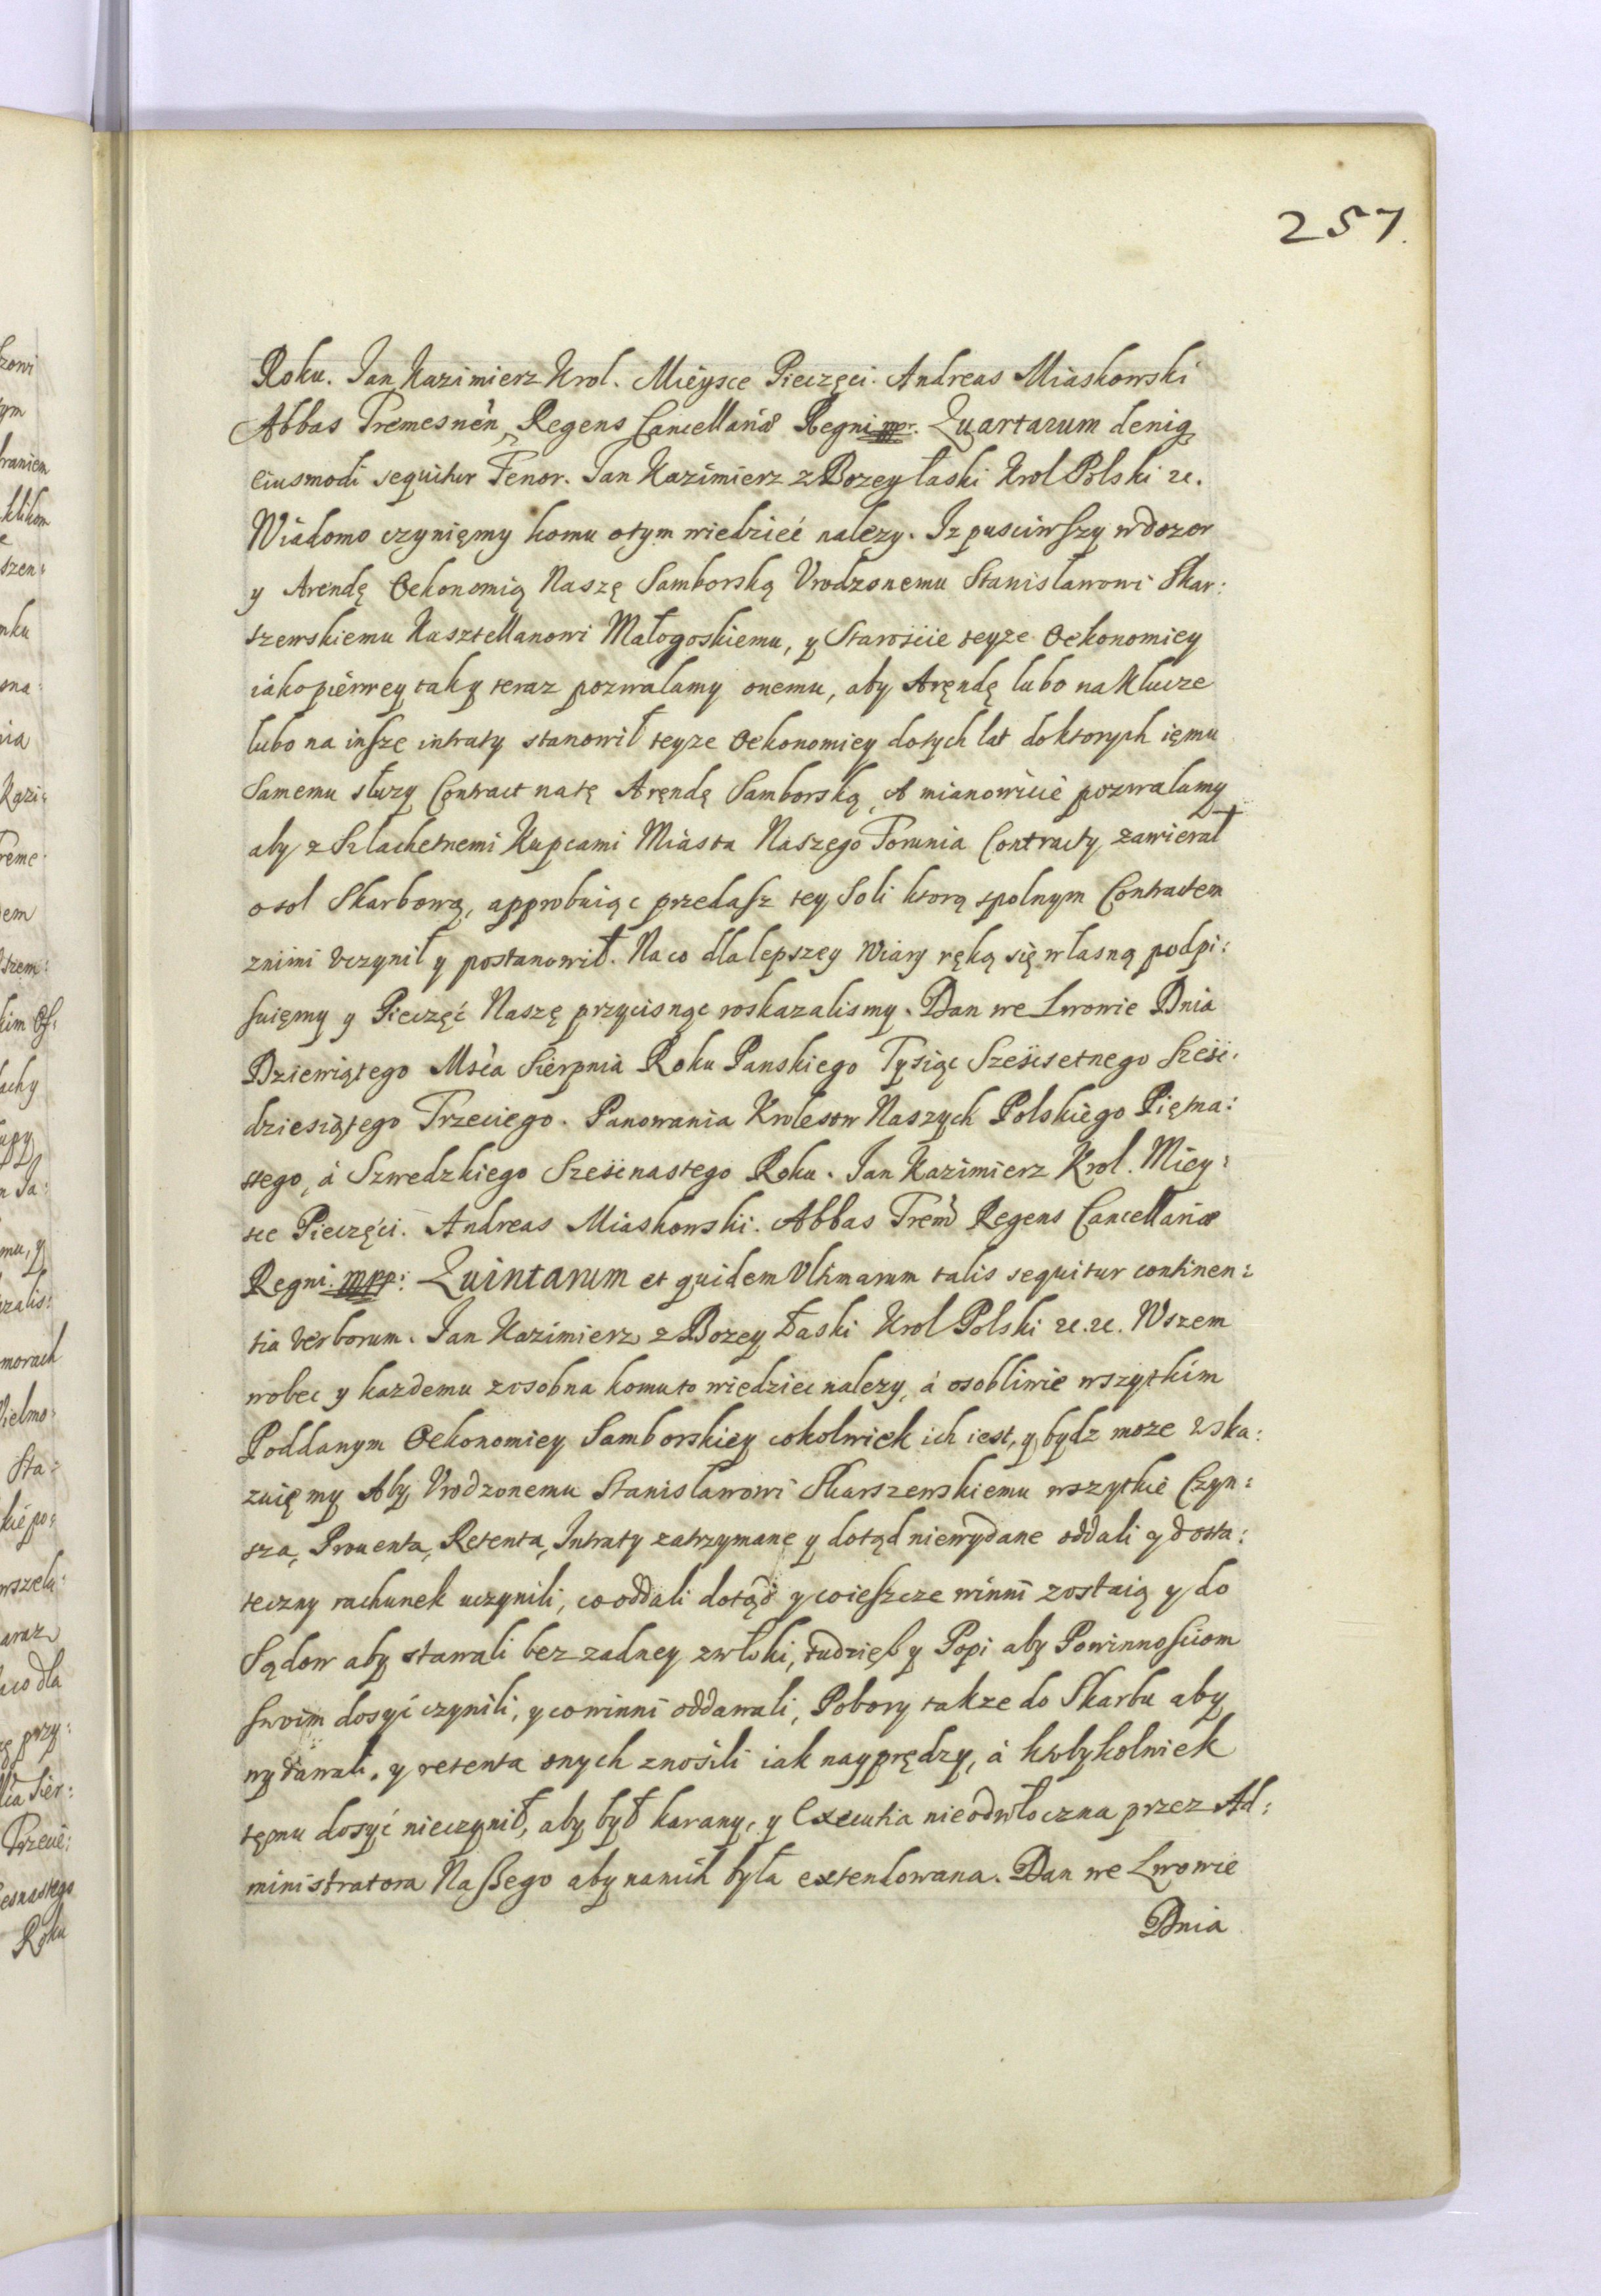 257.
Roku. Jan Kazimierz Krol. Mieysce Pieczęci. Andreas Miaskowski
Abbas Tremesnen, Regens Cancellariæ Regni mpr. Quartarum deniq
eiusmodi sequitur Tenor. Jan Kazimierz z Bozey łaski Krol Polski etc.
Wiadomo czynięmy komu otym wiedzieć nalezy. Iz pusciwszy w dozor
y Arendę Oekonomią Naszę Samborską Vrodzonemu Stanisławowi Skar:
szewskiemu Kasztellanowi Małogoskiemu, y Starosćie teyze Oekonomiey
iako pierwey tak y teraz pozwalamy onemu, aby Aręndę lubo na Klucze
lubo na insze intraty stanowił teyze Oekonomiey dotych lat doktorych iemu
Samemu słuzy Contract natę Aręndę Samborską, A mianowicie pozwalamy
aby z Szlachetnemi Kupcami Miasta Naszego Torunia Contracty zawierał
o sol Skarbową, approbuiąc przedasz tey Soli ktorą spolnym Contractem
znimi vczynił y postanowił. Na co dla lepszey wiary ręką się własną podpi:
suięmy y Pieczęć Naszę przycisnąc roskazalismy. Dan we Lwowie Dnia
Dziewiątego Msca Sierpnia Roku Panskiego Tysiąc Szescsetnego Szesc:
dziesiątego Trzeciego. Panowania Krolestw Naszych Polskiego Piętna:
stego, á Szwedzkiego Szescnastego Roku. Jan Kazimierz Krol. Miey:
sce Pieczęci. Andreas Miaskowski. Abbas Trem Regens Cancellariæ
Regni. mpp: Quintarum et quidem Vltimarum talis sequitur continen:
tia verborum. Jan Kazimierz z Bozey Łaski Krol Polski etc. etc. Wszem
wobec y kazdemu zosobna komu to wiedziec nalezy, á osobliwie wszytkim
Poddanym Oekonomiey Samborskiey cokolwiek ich iest, y bydz moze wska:
zuięmy Aby Vrodzonemu Stanisławowi Skarszewskiemu wszytkie Czyn:
sza, Prouenta, Retenta, Intraty zatrzymane y dotąd niewydane oddali y dosta:
teczny rachunek uczynili, co oddali dotąd y co ieszcze winni zostaią y do
Sądow aby stawali bez zadney zwłoki, tudziesz y Popi aby Powinnosciom
swoim dosyć czynili, y co winni oddawali, Pobory takze do Skarbu aby
wydawali, y retenta onych znosili iak nayprędzy, á ktobykolwiek
tęmu dosyć nieczynił, aby był karany, y Executia nieodwłoczna przez Ad:
ministratora Naszego aby nanich była extendowana. Dan we Lwowie
Dnia